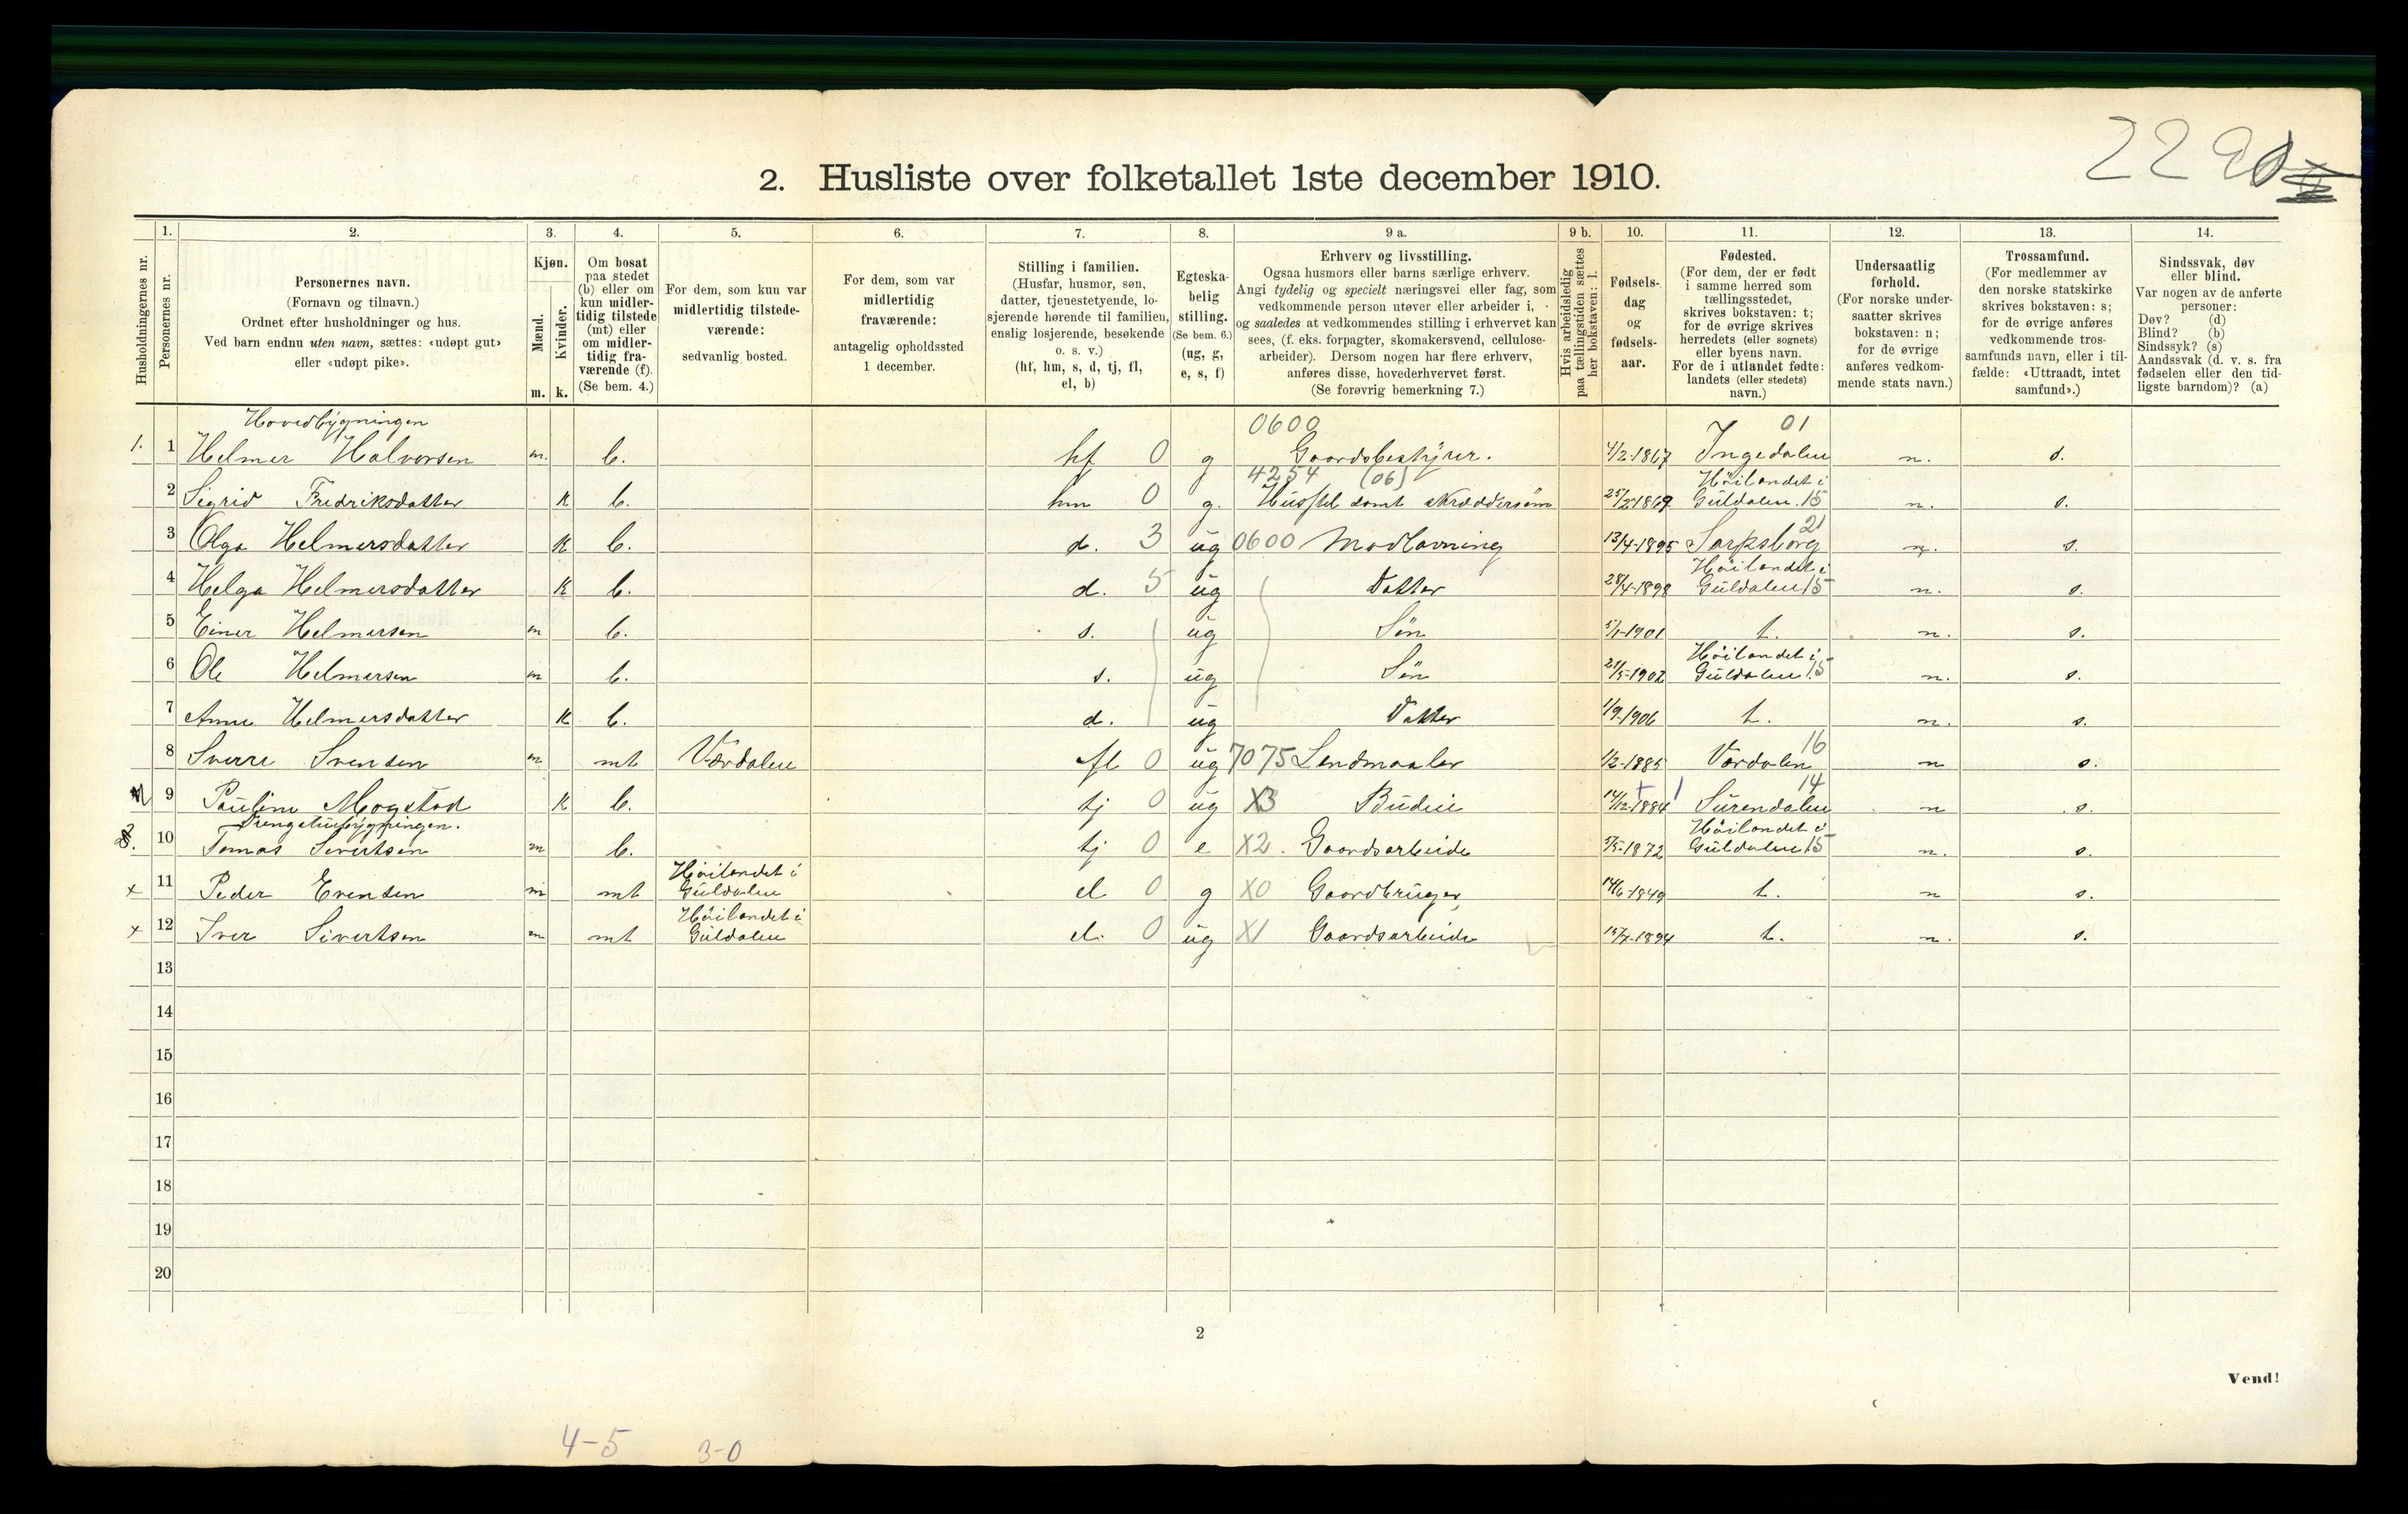 22
2. Husliste over folketallet 1ste december 1910.
Husholdningernes nr.
1. Personernes nr.
2. Personernes navn.
(Fornavn og tilnavn.)
Ordnet efter husholdninger og hus.
Ved barn endnu uten navn, sættes: «udøpt gut»
eller «udøpt pike».
3. Kjøn.
Mænd. m.
Kvinder. k.
4. Om bosat
paa stedet
(b) eller om
kun midler-
tidig tilstede
(mt) eller
om midler-
tidig fra-
værende (f).
(Se bem. 4.)
5. For dem, som kun var
midlertidig tilstede-
værende:
sedvanlig bosted.
6. For dem, som var
midlertidig
fraværende:
antagelig opholdssted
1 december.
7. Stilling i familien.
(Husfar, husmor, søn,
datter, tjenestetyende, lo-
sjerende hørende til familien,
enslig losjerende, besøkende
o. s. v.)
(hf, hm, s, d, tj, fl,
el, b)
8. Egteska-
belig
stilling.
(Se bem. 6.)
(ug, g,
e, s, f)
9 a. Erhverv og livsstilling.
Ogsaa husmors eller barns særlige erhverv.
Angi tydelig og specielt næringsvei eller fag, som
vedkommende person utøver eller arbeider i,
og saaledes at vedkommendes stilling i erhvervet kan
sees, (f. eks. forpagter, skomakersvend, cellulose-
arbeider). Dersom nogen har flere erhverv,
anføres disse, hovederhvervet først.
(Se forøvrig bemerkning 7.)
9 b. Hvis arbeidsledig
paa tællingstiden sættes
her bokstaven: l.
10. Fødsels-
dag
og
fødsels-
aar.
11. Fødested.
(For dem, der er født
i samme herred som
tællingsstedet,
skrives bokstaven: t;
for de øvrige skrives
herredets (eller sognets)
eller byens navn.
For de i utlandet fødte:
landets (eller stedets)
navn.)
12. Undersaatlig
forhold.
(For norske under-
saatter skrives
bokstaven: n;
for de øvrige
anføres vedkom-
mende stats navn.)
13. Trossamfund.
(For medlemmer av
den norske statskirke
skrives bokstaven: s;
for de øvrige anføres
vedkommende tros-
samfunds navn, eller i til-
fælde: «Uttraadt, intet
samfund».)
14. Sindssvak, døv
eller blind.
Var nogen av de anførte
personer:
Døv? (d)
Blind? (b)
Sindssyk? (s)
Aandssvak (d. v. s. fra
fødselen eller den tid-
ligste barndom)? (a)
Hovedbygningen 0600 01
1. 1 Helmer Halvorsen m. b. hf 0 g Gaardsbestyrer. 4/2-1867 Ingedalen n. s.
4254 (06) Höilandet i
2 Sigrid Fredriksdatter k b. hm 0 g. Husstel samt skræddersöm 25/2-1869 Guldalen. 15 n. s.
3 Olga Helmersdatter k b. d. 3 ug 0600 Madlavning 13/4-1895 Sarpsborg 21 n. s.
Höilandet i
4 Helga Helmersdatter k b. d. 5 ug Datter 28/4-1898 Guldalen 15 n. s.
5 Einer Helmersen m b. s. ug Sön 5/1-1901 t. n. s.
Höilandet i
6 Ole Helmersen m b. s. ug Sön 21/5-1902 Guldalen 15 n. s.
7 Anne Helmersdatter k b. d. ug Datter 1/9-1906 t. n. s.
8 Sverre Svensen m mt Værdalen fl 0 ug 7075 Landmaaler 1/2-1885 Værdalen 16 n s.
9 Pauline Mogstad k b. tj 0 ug X3 Budeie 14/12-1884 Surendalen 14 n s.
Drengstubygningen. Höilandet i
2. 10 Tomas Sivertsen m b. tj 0 e X2. Gaardsarbeide 5/5-1872 Guldalen 15 n. s.
Höilandet i
x 11 Peder Evensen m mt Guldalen el 0 g X0 Gaardbruger, 14/6-1849 t. n s.
Höilandet i
x 12 Iver Sivertsen m mt Guldalen el. 0 ug X1 Gaardsarbeide 15/7-1894 t. n. s.
13
14
15
16
17
18
19
20
2
Vend!
4-5 3-0